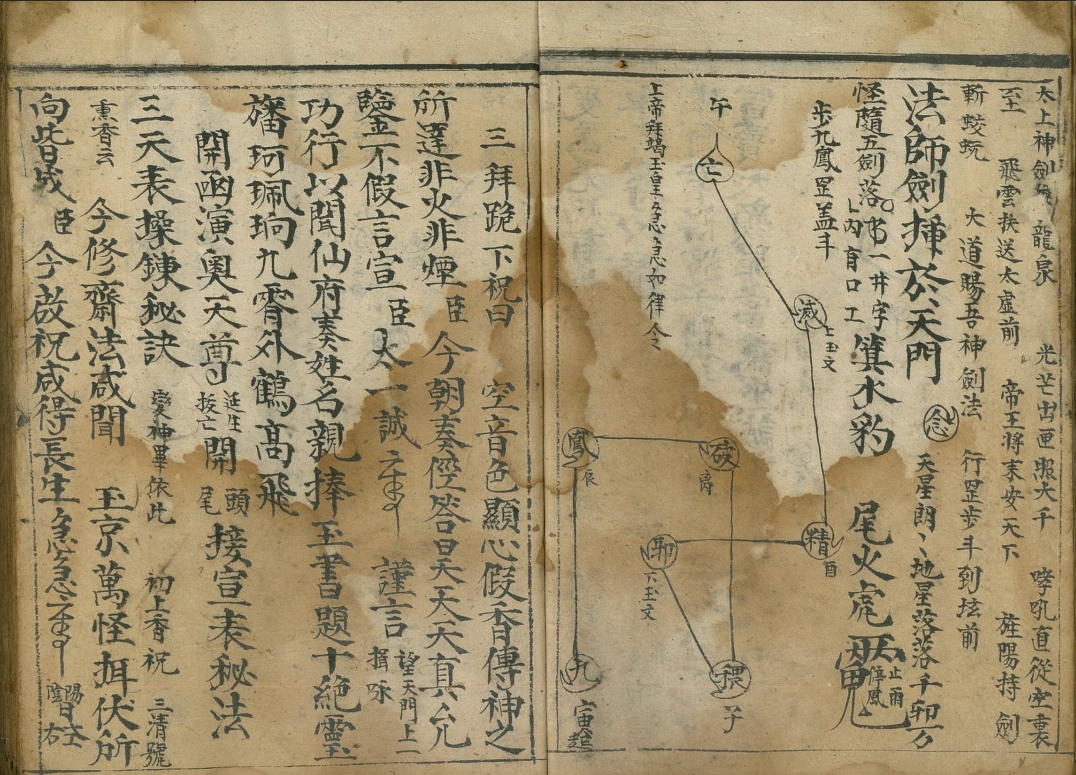 太上神劍 龍泉 光芒出匣照大千 哮吼直從空裏
至 飛雲扶送太虛前 帝王將末安天下 旌陽持劍
斬蛟蜃 大道賜吾神劍法 行罡步斗到坛前
法師劍揮於天門 念 天星朗朗地星落落千卯万
怪隨五劍落 一井字 箕水豹 尾火虎
内有口工
止雨
停風
步九鳳罡盖斗
午
亡
滅
上玉文
精
酉
卯
下玉文
猥
子
破
离
鳳
辰
九
寅起
上帝拜謁玉皇急急如律令
三拜跪下祝曰 空音色顯心假香傳神之
所達非火非煙 臣 今朝奏徑答昊天天真允
鑒不假言宣 臣 太一誠 謹言
望天門上二
揖咏
功行以聞仙府奏姓名親捧玉書題十絕靈
旛珂珮响九霄外鶴高飛
開函演奧天尊 開 接宣表秘法
延生
拔亡
頭
尾
三天表操鍊秘訣 變神畢依此 初上香祝 三清號
熏香云 今修齋法咸聞 玉京萬怪拱伏所
向皆成 臣 今啟祝咸得長生急急